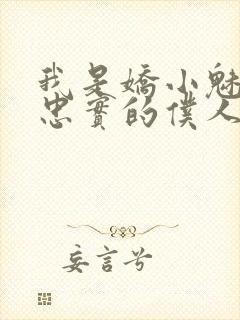 我是嬌小魅
忠實的僕人
妄言兮